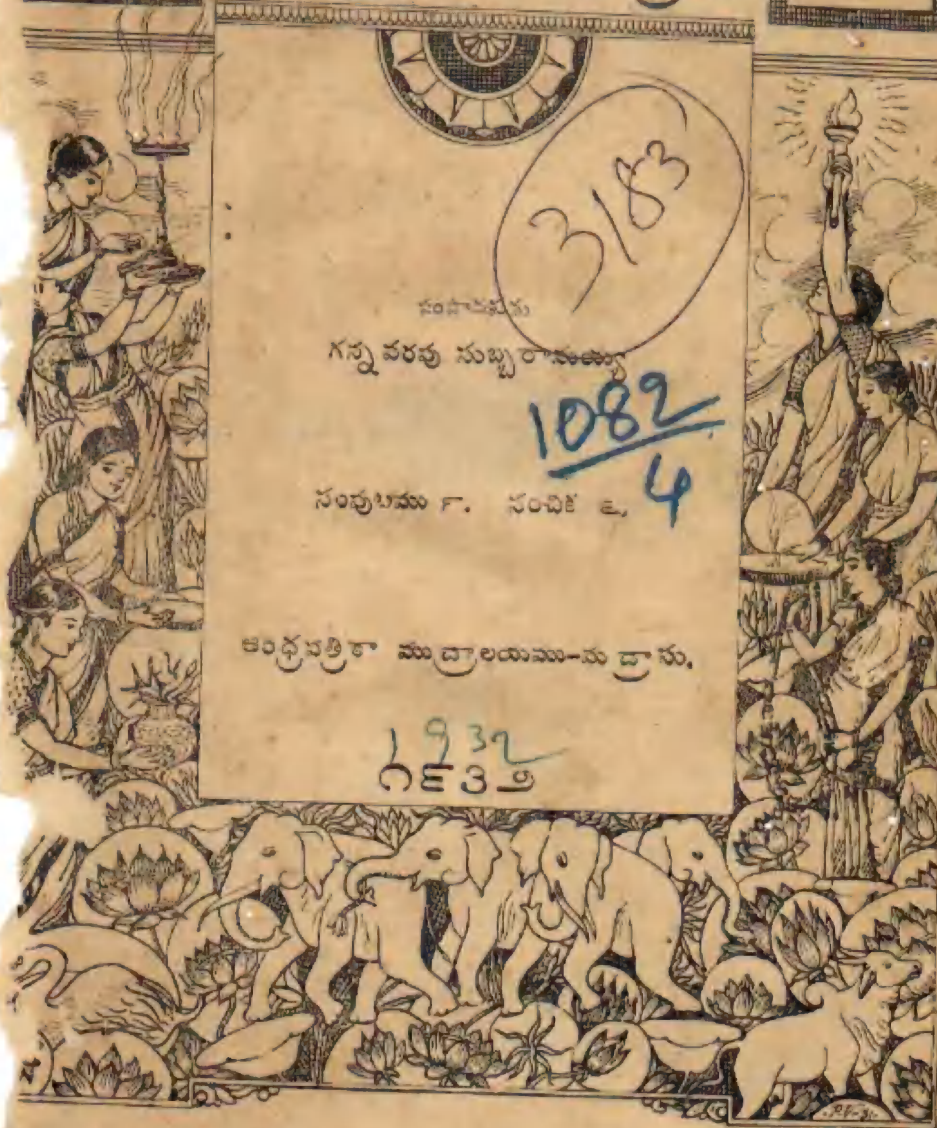 3183
సంపాదకుడు
గన్నవరపు సుబ్బరామయ్య
1082
4
సంపుటము ౯. సంచిక ౬.
ఆంధ్రపత్రికా ముద్రాలయము-మద్రాసు.
1932
౧౯౩౨